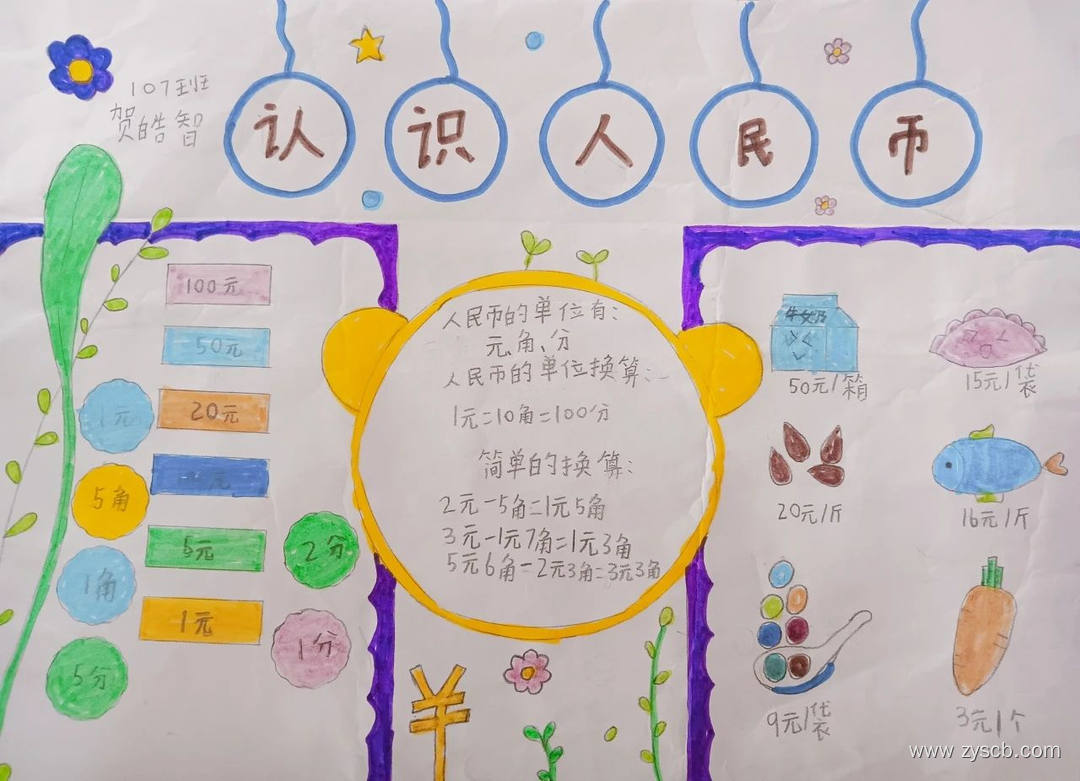 107班
贺皓智
认识人民币
100元
50元
20元
5元
1元
1元
5角
1角
5分
2分
1分
人民币的单位有:
元、角、分
人民币的单位换算:
1元=10角=100分
简单的换算:
2元-5角=1元5角
3元-1元7角=1元3角
5元6角-2元3角=3元3角
牛奶
50元/箱
15元/袋
20元/斤
16元/斤
9元/袋
3元/个
¥
www.zyscb.com